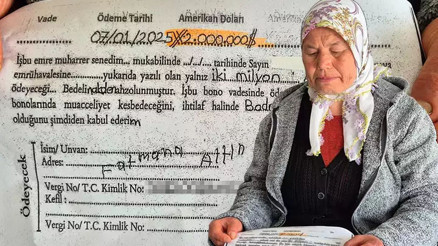 Vade Ödeme Tarihi Amerikan Doları
07/01/2025 2.000.000$
İşbu emre muharrer senedim... mukabilinde ../../.... tarihinde Sayın
emrühavalesine............yukarıda yazılı olan yalnız iki milyon
ödeyeceği... Bedelinden ahzolunmuştur. İşbu bono vadesinde öd
bonolarında muacceliyet kesbedeceğini, ihtilaf halinde Bodr
olduğunu şimdiden kabul ederim
Ödeyecek
İsim/ Unvan:
Adres:
Fatmana Altın
Vergi No/ T.C. Kimlik No:
Kefil :
Vergi No/ T.C. Kimlik No: